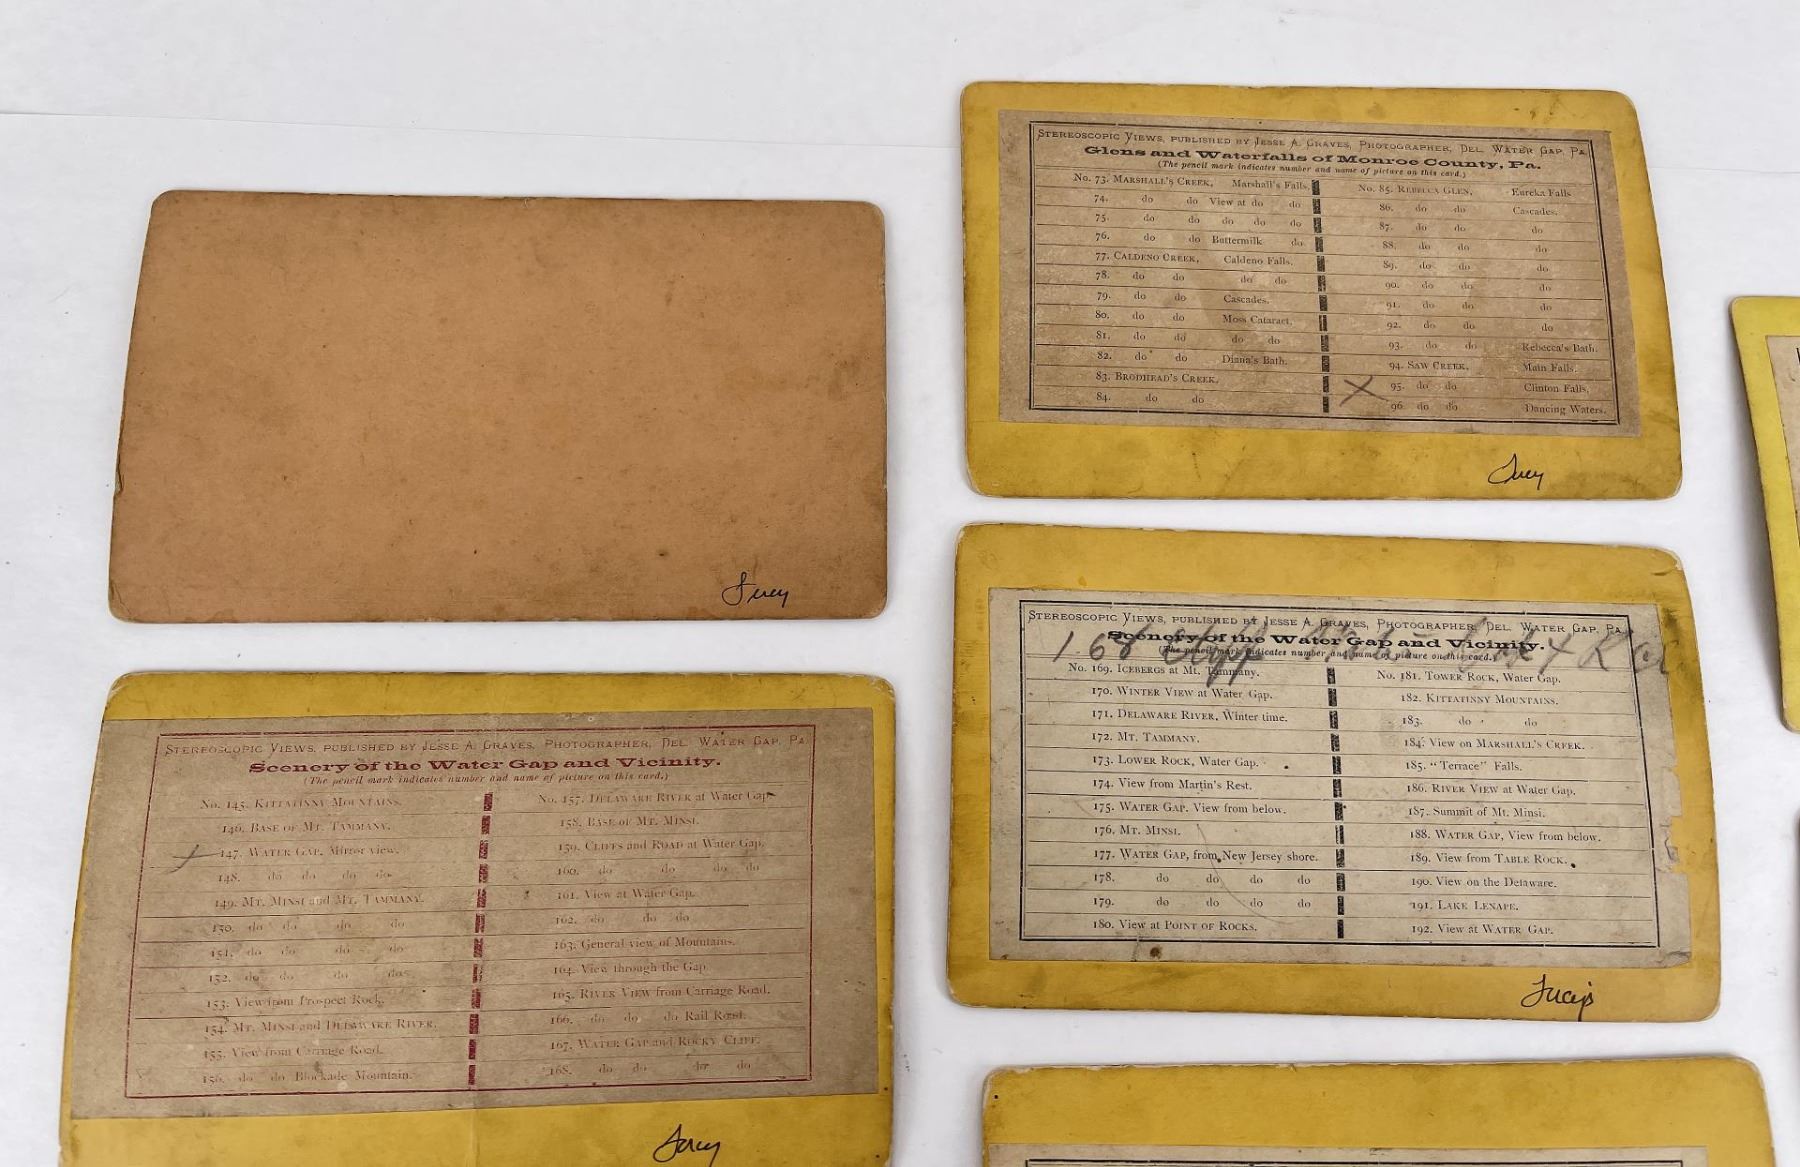 Lucy
STEREOSCOPIC VIEWS, PUBLISHED BY JESSE A. GRAVES, PHOTOGRAPHER, DEL. WATER GAP, PA.
Glens and Waterfalls of Monroe County, Pa.
(The pencil mark indicates number and name of picture on this card.)
No. 73. MARSHALL'S CREEK, Marshall's Falls.
74. do do View at do do
75. do do do do do
76. do do Buttermilk do
77. CALDENO CREEK, Caldeno Falls.
78. do do do do
79. do do Cascades.
80. do do Moss Cataract.
81. do do do do
82. do do Diana's Bath.
83. BRODHEAD'S CREEK.
84. do do
No. 85. REBECCA GLEN, Eureka Falls
86. do do Cascades.
87. do do do
88. do do do
89. do do do
90. do do do
91. do do do
92. do do do
93. do do Rebecca's Bath.
94. SAW CREEK, Main Falls.
X 95. do do Clinton Falls.
96 do do Dancing Waters.
Lucy
STEREOSCOPIC VIEWS, PUBLISHED BY JESSE A. GRAVES, PHOTOGRAPHER, DEL. WATER GAP, PA.
Scenery of the Water Gap and Vicinity.
(The pencil mark indicates number and name of picture on this card.)
No. 145. KITTATINNY MOUNTAINS.
146. BASE OF MT. TAMMANY.
147. WATER GAP, Mirror view.
148. do do do do
149. MT. MINSI and MT. TAMMANY.
150. do do do do
151. do do do do
152. do do do do
153. View from Prospect Rock.
154. MT. MINSI and DELAWARE RIVER.
155. View from Carriage Road.
156. do do Blockade Mountain.
No. 157. DELAWARE RIVER at Water Gap.
158. BASE of MT. MINSI.
159. CLIFFS and ROAD at Water Gap.
160. do do do do
161. View at Water Gap.
162. do do do
163. General view of Mountains.
164. View through the Gap
165. RIVER VIEW from Carriage Road.
166. do do do Rail Road.
167. WATER GAP and ROCKY CLIFF.
168. do do do do
Lucy
STEREOSCOPIC VIEWS, PUBLISHED BY JESSE A. GRAVES, PHOTOGRAPHER, DEL. WATER GAP, PA.
Scenery of the Water Gap and Vicinity.
(The pencil mark indicates number and name of picture on this card.)
168
No. 169. ICEBERGS at Mt. Tammany.
170. WINTER VIEW at Water Gap.
171. DELAWARE RIVER, Winter time.
172. MT. TAMMANY.
173. LOWER ROCK, Water Gap.
174. View from Martin's Rest.
175. WATER GAP. View from below.
176. MT. MINSI.
177. WATER GAP, from New Jersey shore.
178. do do do do
179. do do do do
180. View at POINT OF ROCKS.
No. 181. TOWER ROCK, Water Gap.
182. KITTATINNY MOUNTAINS.
183. do do
184. View on MARSHALL'S CREEK.
185. "Terrace" Falls.
186. RIVER VIEW at Water Gap.
187. Summit of Mt. Minsi.
188. WATER GAP, View from below.
189. View from TABLE ROCK.
190. View on the Delaware.
191. LAKE LENAPE.
192. View at WATER GAP.